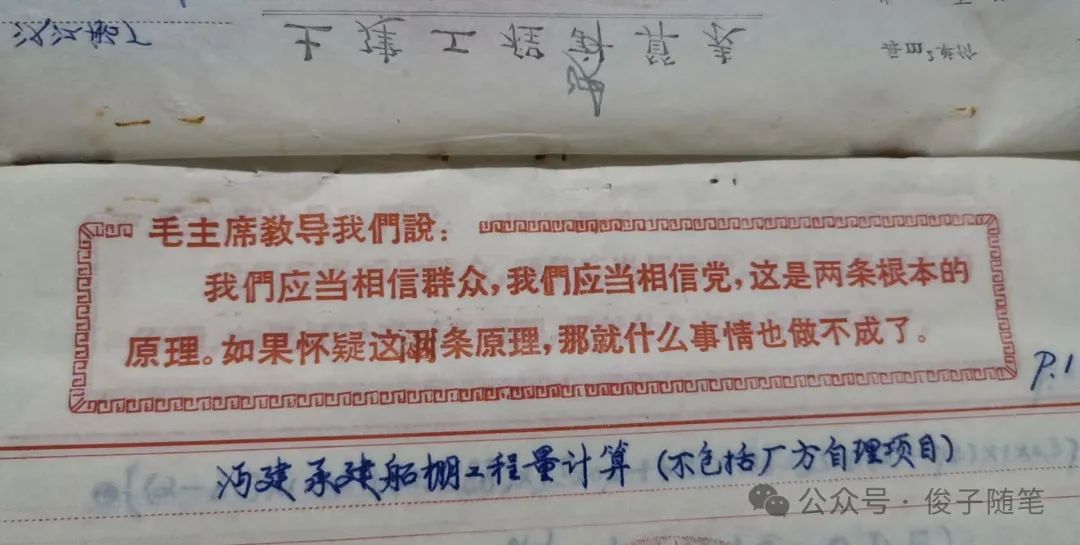 土建工程预算表
毛主席教导我們說：
我們应当相信群众，我們应当相信党，这是两条根本的
原理。如果怀疑这两条原理，那就什么事情也做不成了。
P.1
沔建承建船棚工程量计算（不包括厂方自理项目）
公众号·俊子随笔